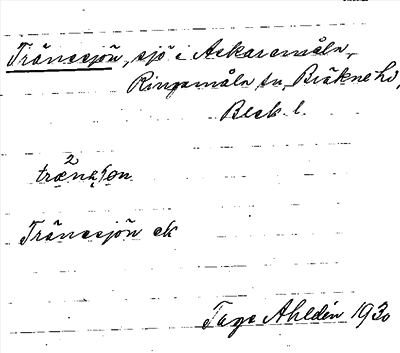 Tränsjön, sjö i Askaremåla,
Ringamåla sn, Bräkne hd,
Blek. l.
2
trænʃon
Tränsjön ek
Tage Ahldén 1930